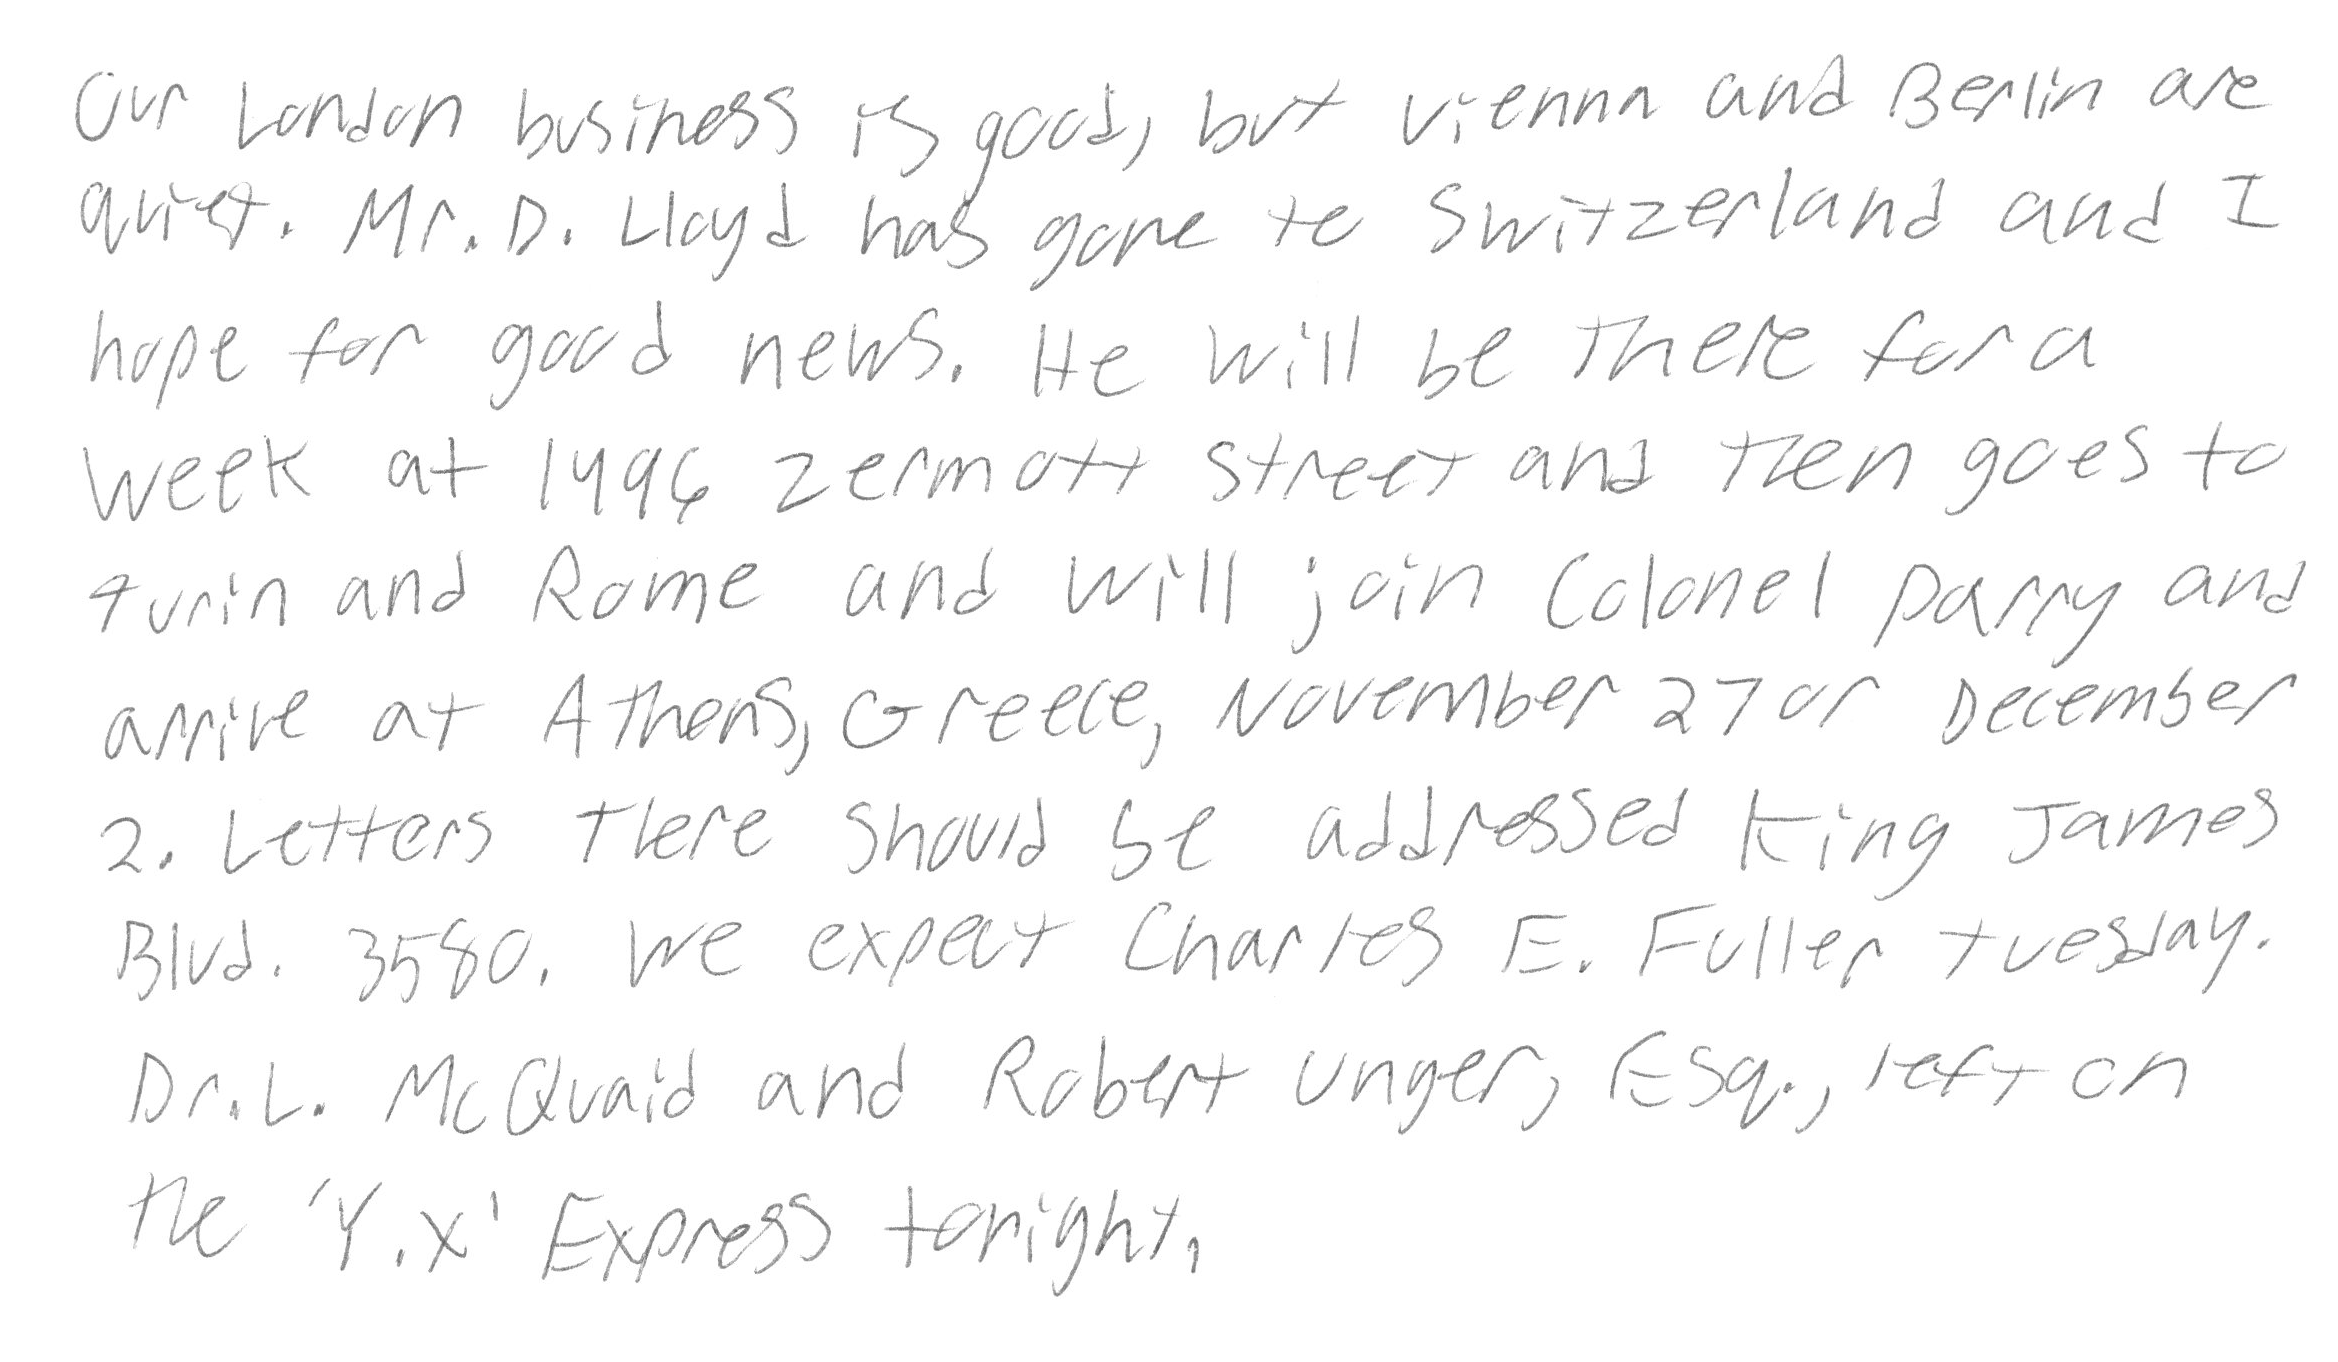 Our London business is good, but Vienna and Berlin are
quiet. Mr. D. Lloyd has gone to Switzerland and I
hope for good news. He will be there for a
week at 1496 Zermott street and then goes to
turin and Rome and will join Colonel parry and
arrive at Athens, Greece, November 27 or December
2. Letters there should be addressed King James
Blvd. 3580. We expect Charles E. Fuller tuesday.
Dr. L. McQuaid and Robert Unger, Esq., left on
the 'Y.X' Express tonight.